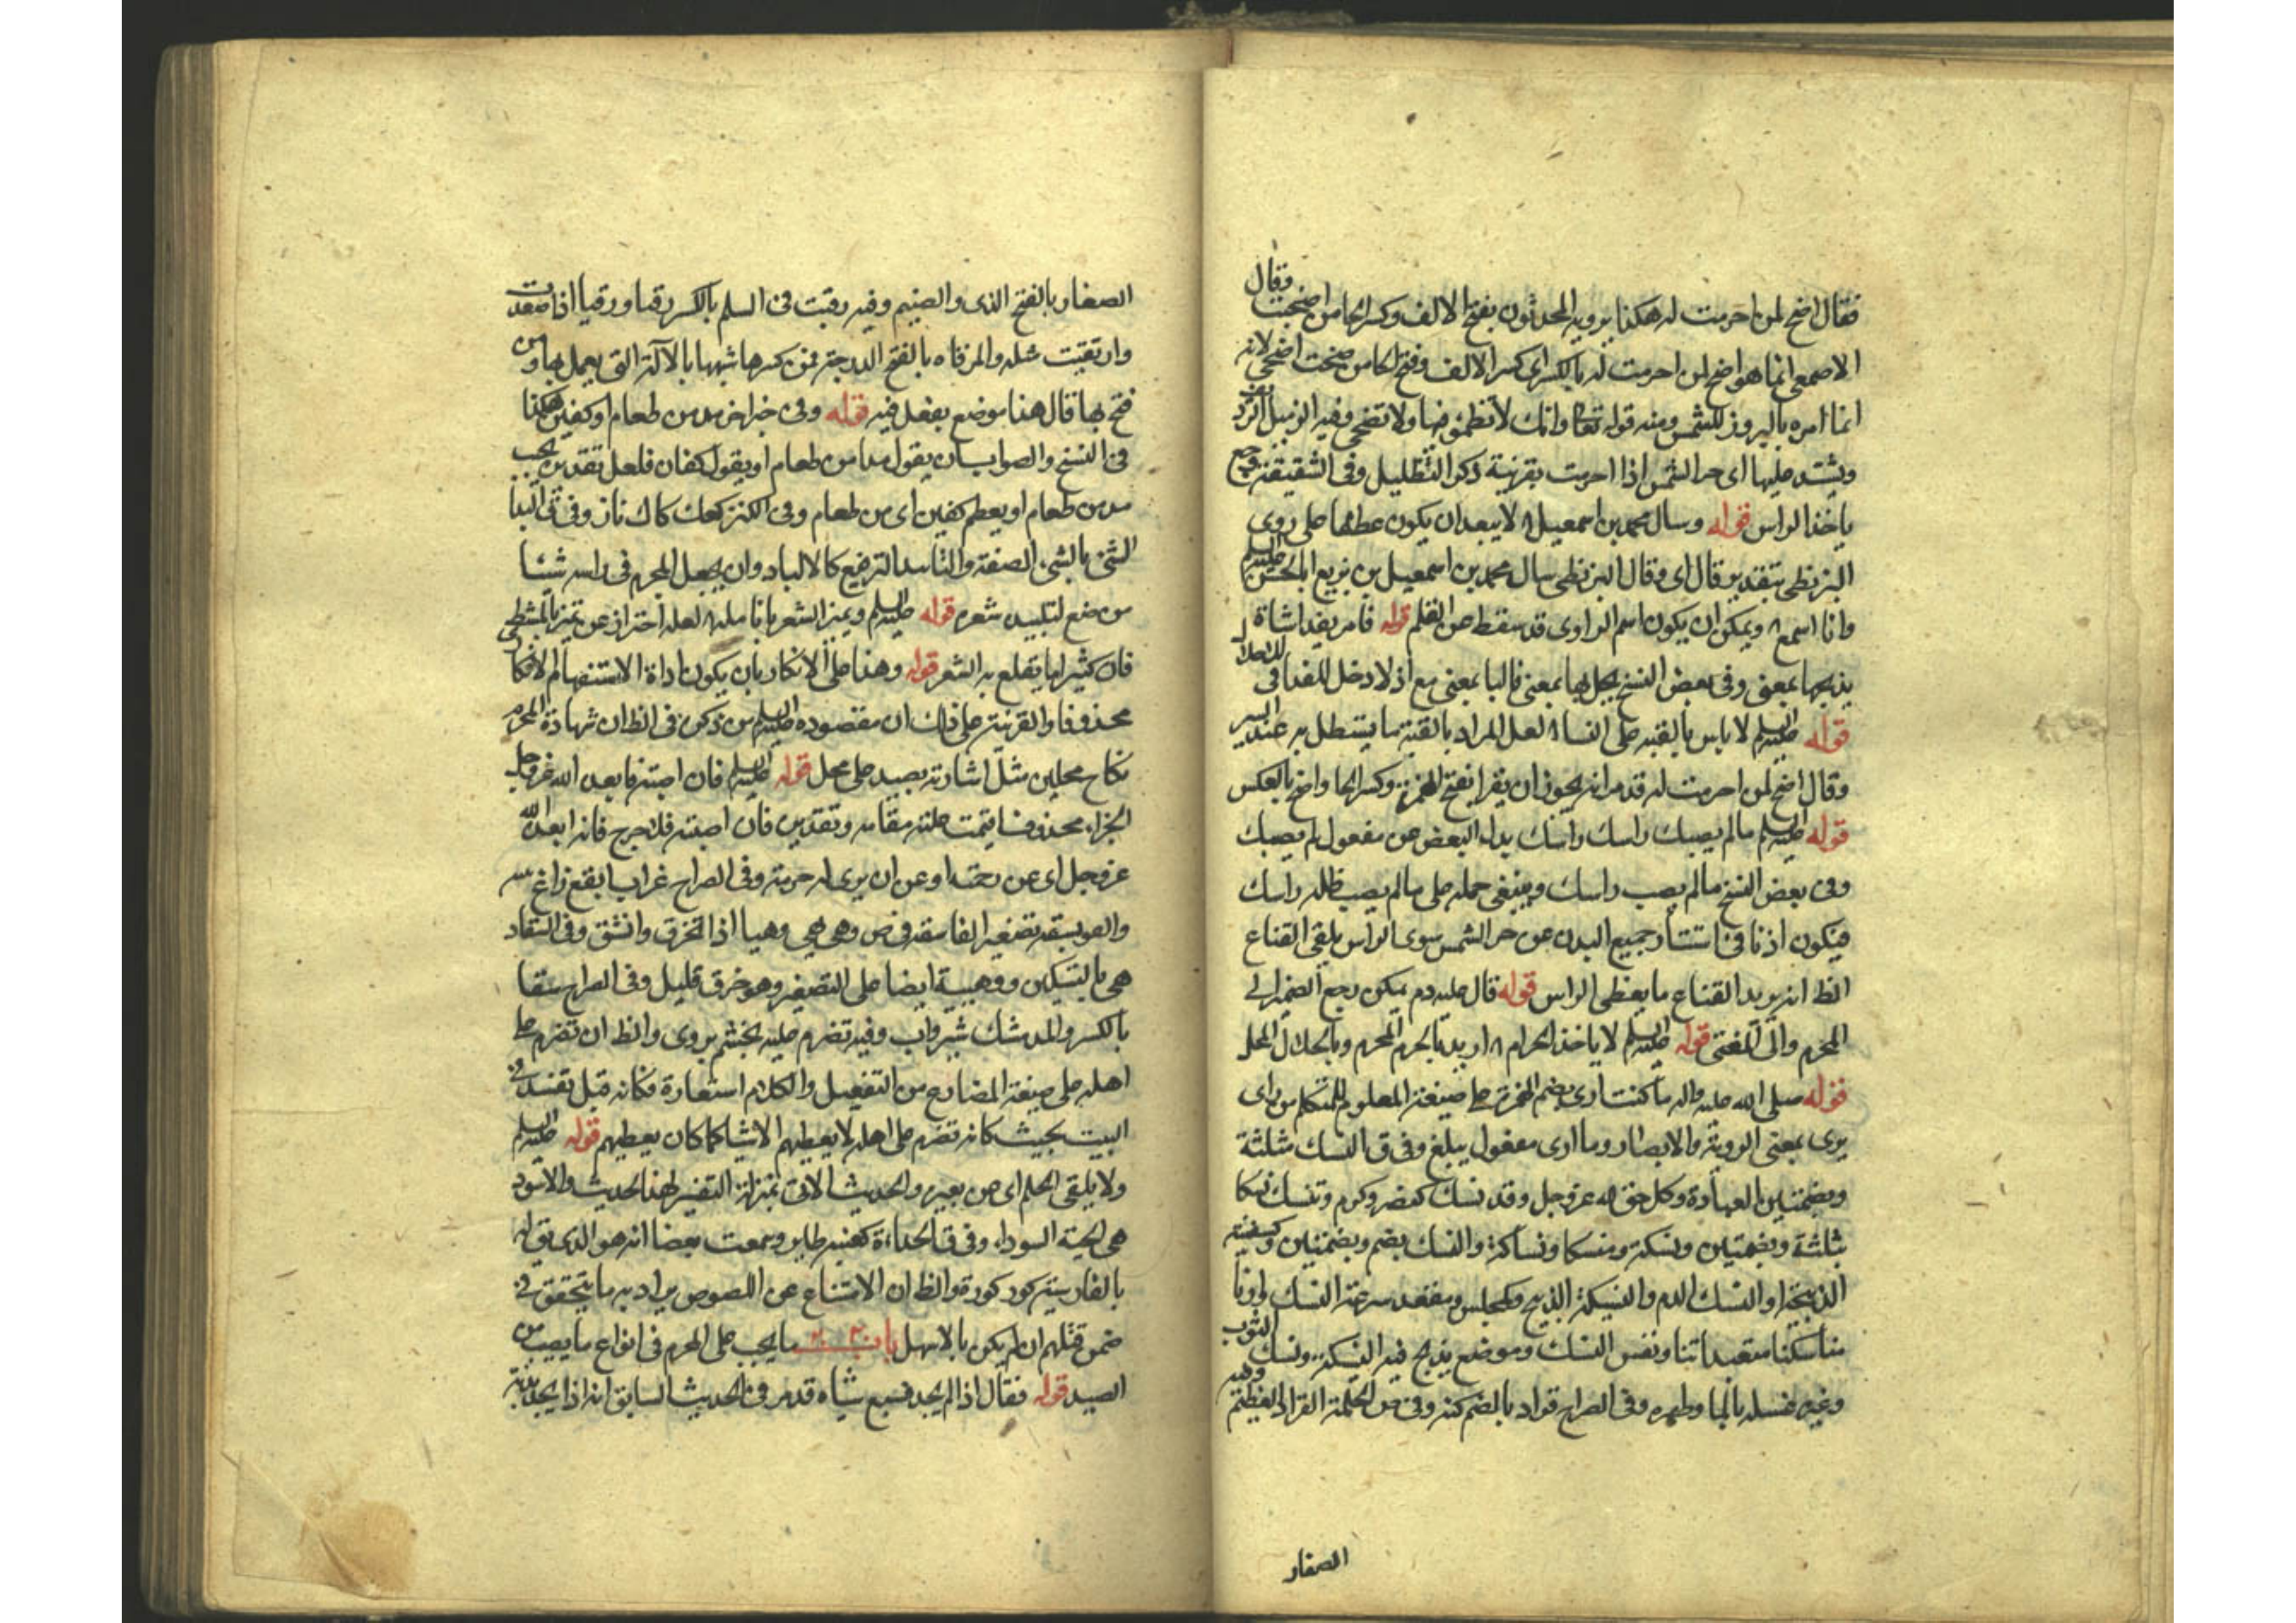 فقال اضح لمن احرمت له هكذا يرويه المحدثون بفتح الالف وكسر الحا من اضحيت وقال
الاصمعى انما هو اضح لمن احرمت له بالكسر اى كسر الالف وفتح الحا من ضحيت اضحى لانه
انما امره بالبروز للشمس ومنه قوله تعالى وانك لا تظمؤ فيها ولا تضحى وفيه الزميل
ويشتد عليها اى حر الشمس اذا احرمت بقرينة ذكر التظليل وفى الشقيقة وجع
ياخذ الراس قوله وسال محمد بن اسمعيل لا يبعد ان يكون عطفها على روى
البزنطى بتقدير قال اى وقال البزنطى سال محمد بن اسمعيل بن بزيع ابا الحسن عليه السلم
وانا اسمع ويمكن ان يكون اسم الراوى قد سقط من القلم قوله فامر بفداشاة
يذبحها بمعنى وفى بعض النسخ بمعنى فالبا بمعنى مع اذ لا دخل للفدا فى
قوله عليه السلم لا باس بالقبة على النسا لعل المراد بالقبة ما يستظل به عند السير
وقال اضح لمن احرمت له قد مر انه يجوز ان يقرا بفتح الهمزة وكسر الحا واضح بالعكس
قوله عليه السلم ما لم يصبك راسك راسك بدل البعض من مفعول لم يصبك
وفى بعض النسخ ما لم يصب راسك وينبغى حمله على ما لم يصب ظله راسك
فيكون اذنا فى استتار جميع البدن عن حر الشمس سوى الراس يلقى القناع
الظ انه يريد القناع ما يغطى الراس قوله قال عليه دم يمكن رجع الضمير الى
المحرم والى المفتى قوله عليه السلم لا ياخذ الحرام اريد بالحرم المحرم وبالحلال المحل
قوله صلى الله عليه واله ما كنت ارى بضم الهمزة على صيغة المعلوم للمتكلم من راى
يرى بمعنى الروية والابصار وما ارى مفعول يبلغ وفى ق النسك مثلثة
وبضمتين العبادة وكل حق لله عز وجل وقد نسك كنصر وكرم وتنسك نسكا
مثلثة وبضمتين ونسكة ومنسكا ونساكة والنسك بضم وبضمتين وكسفينة
الذبيحة او النسك الدم والنسيكة الذبح وكمجلس ومقعد شرعة النسك وارنا
مناسكنا متعبداتنا ونفس النسك وموضع يذبح فيه النسيكة ونسك الثوب
وغيره غسله بالما وطهره وفى الصراح قراد بالضم كنه وفى ص الحلمة القراد العظيم وفيه
الصغار
الصغار بالفتح الذى والضيم وفيه رقيت فى السلم بالكسر رقيا ورقيا اذا صعدت
وارتقيت مثله والمرقاه بالفتح الدرجة فمن كسرها شبهها بالآلة التى يعمل بها ومن
فتح بها قال هذا موضع يفعل فيه قوله وفى خبر اخر مد من طعام او كفين هكذا
فى النسخ والصواب ان يقول مدا من طعام او يقول كفان فلعل تقديره يجب
مد من طعام او يعطى كفين اى من طعام وفى الكنز كعك كاك نان وفى ق البد
الشئ بالشئ الصقه والتلبيد الترقيع كالالباد وان يجعل المحرم فى راسه شيئا
من صمغ لتلبيد شعره قوله عليه السلم ويميز الشعر بانامله لعله احتراز عن تميز بالمشط
فان كثيرا ما يقلع به الشعر قوله وهذا على الانكار بان يكون اداة الاستفهام للانكار
محذوفا والقرينة على ذلك ان مقصوده عليه السلم من ذكره فى الظ ان شهادة المحرم
نكاح محلين مثل اشارته بصيد على محل قوله عليه السلم فان اصبته فابعد الله عز وجل
الجزاء محذوف اقيمت علته مقامه وتقديره فان اصبته فلا حرج فانه ابعده الله
عز وجل اى عن رحمته او عن ان يرى له حرمة وفى الصراح غراب ابقع زاغ
والفويسقة تصغير الفاسقة فى ص وهى هى وهيا اذا تخرق وانشق وفى السقاء
هى بالتسكين ووهية ايضا على التصغير وهو خرق قليل وفى الصراح سقا
بالكسر والمد مشك شير وآب وفيه تضرم عليه بخشم بروى والظ ان تضرم على
اهله على صيغة المضارع من التفعيل والكلام استعارة فكانه قيل تفسد فى
البيت بحيث كانه تضرم على اهله لا يعطيهم الا شيا كما كان يعطيهم قوله عليه السلم
ولا يلقى الحلم اى من بعيره والحديث الاتى بمنزلة التفسير لهذا الحديث والاسود
هى الحية السودا وفى ق الحداءة كعنبة طاير وسمعت بعضا انه هو الذى يقول
بالفارسية كوركورة والظ ان الامتناع عن اللصوص يراد به ما يتحقق فى
ضمن قتلهم ان لم يكن بالاسهل باب ما يجب على المحرم فى انواع ما يصيب من
الصيد قوله فقال اذا لم يجد فسبع شياه قد مر فى الحديث السابق انه اذا لم يجد بدنة